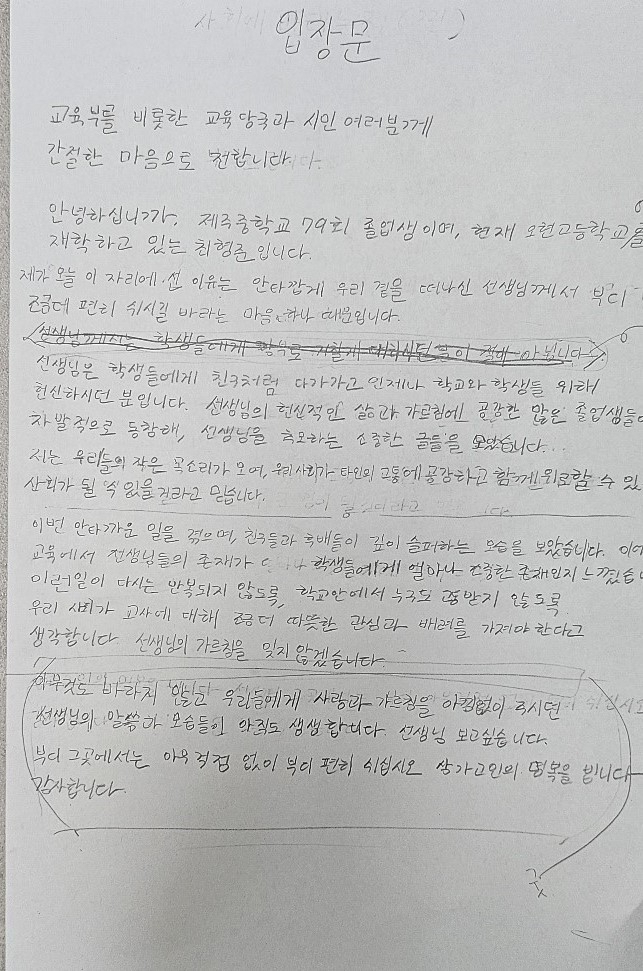 입장문
교육부를 비롯한 교육당국과 시민 여러분께
간절한 마음으로 전합니다.
안녕하십니까. 제주중학교 79회 졸업생이며, 현재 오현고등학교를
재학하고 있는 최형준입니다.
제가 오늘 이 자리에 선 이유는 안타깝게 우리 곁을 떠나신 선생님께서 부디
조금더 편히 쉬시길 바라는 마음 하나 때문입니다.
선생님께서는 학생들에게 함부로 거칠게 대하시던 분이 절대 아닙니다
선생님은 학생들에게 친구처럼 다가가고 언제나 학교와 학생들 위해
헌신하시던 분입니다. 선생님의 헌신적인 삶과 가르침에 공감한 많은 졸업생들이
자발적으로 동참해, 선생님을 추모하는 소중한 글들을 모았습니다...
저는 우리들의 작은 목소리가 모여, 우리 사회가 타인의 고통에 공감하고 함께 위로할 수 있
사회가 될 수 있을거라고 믿습니다.
이번 안타까운 일을 겪으며, 친구들과 후배들이 깊이 슬퍼하는 모습을 보았습니다. 이에
교육에서 선생님들의 존재가 학생들에게 얼마나 소중한 존재인지 느꼈습
이런일이 다시는 반복되지 않도록, 학교안에서 누구도 받지 않도록
우리 사회가 교사에 대해 조금더 따뜻한 관심과 배려를 가져야 한다고
생각합니다. 선생님의 가르침을 잊지 않겠습니다.
아무것도 바라지 않고 우리들에게 사랑과 가르침을 아낌없이 주시던
선생님의 말씀하 모습들이 아직도 생생합니다. 선생님 보고싶습니다.
부디 그곳에서는 아무 걱정 없이 부디 편히 쉬십시오 삼가고인의 명복을 빕니다
감사합니다.